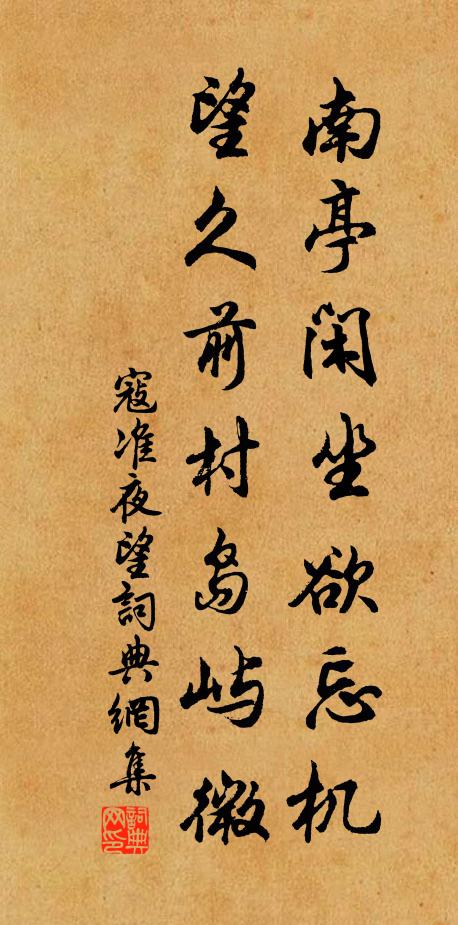 南亭闲坐欲忘机
望久前村岛屿微
寇准夜望詞典網集
詞典网印